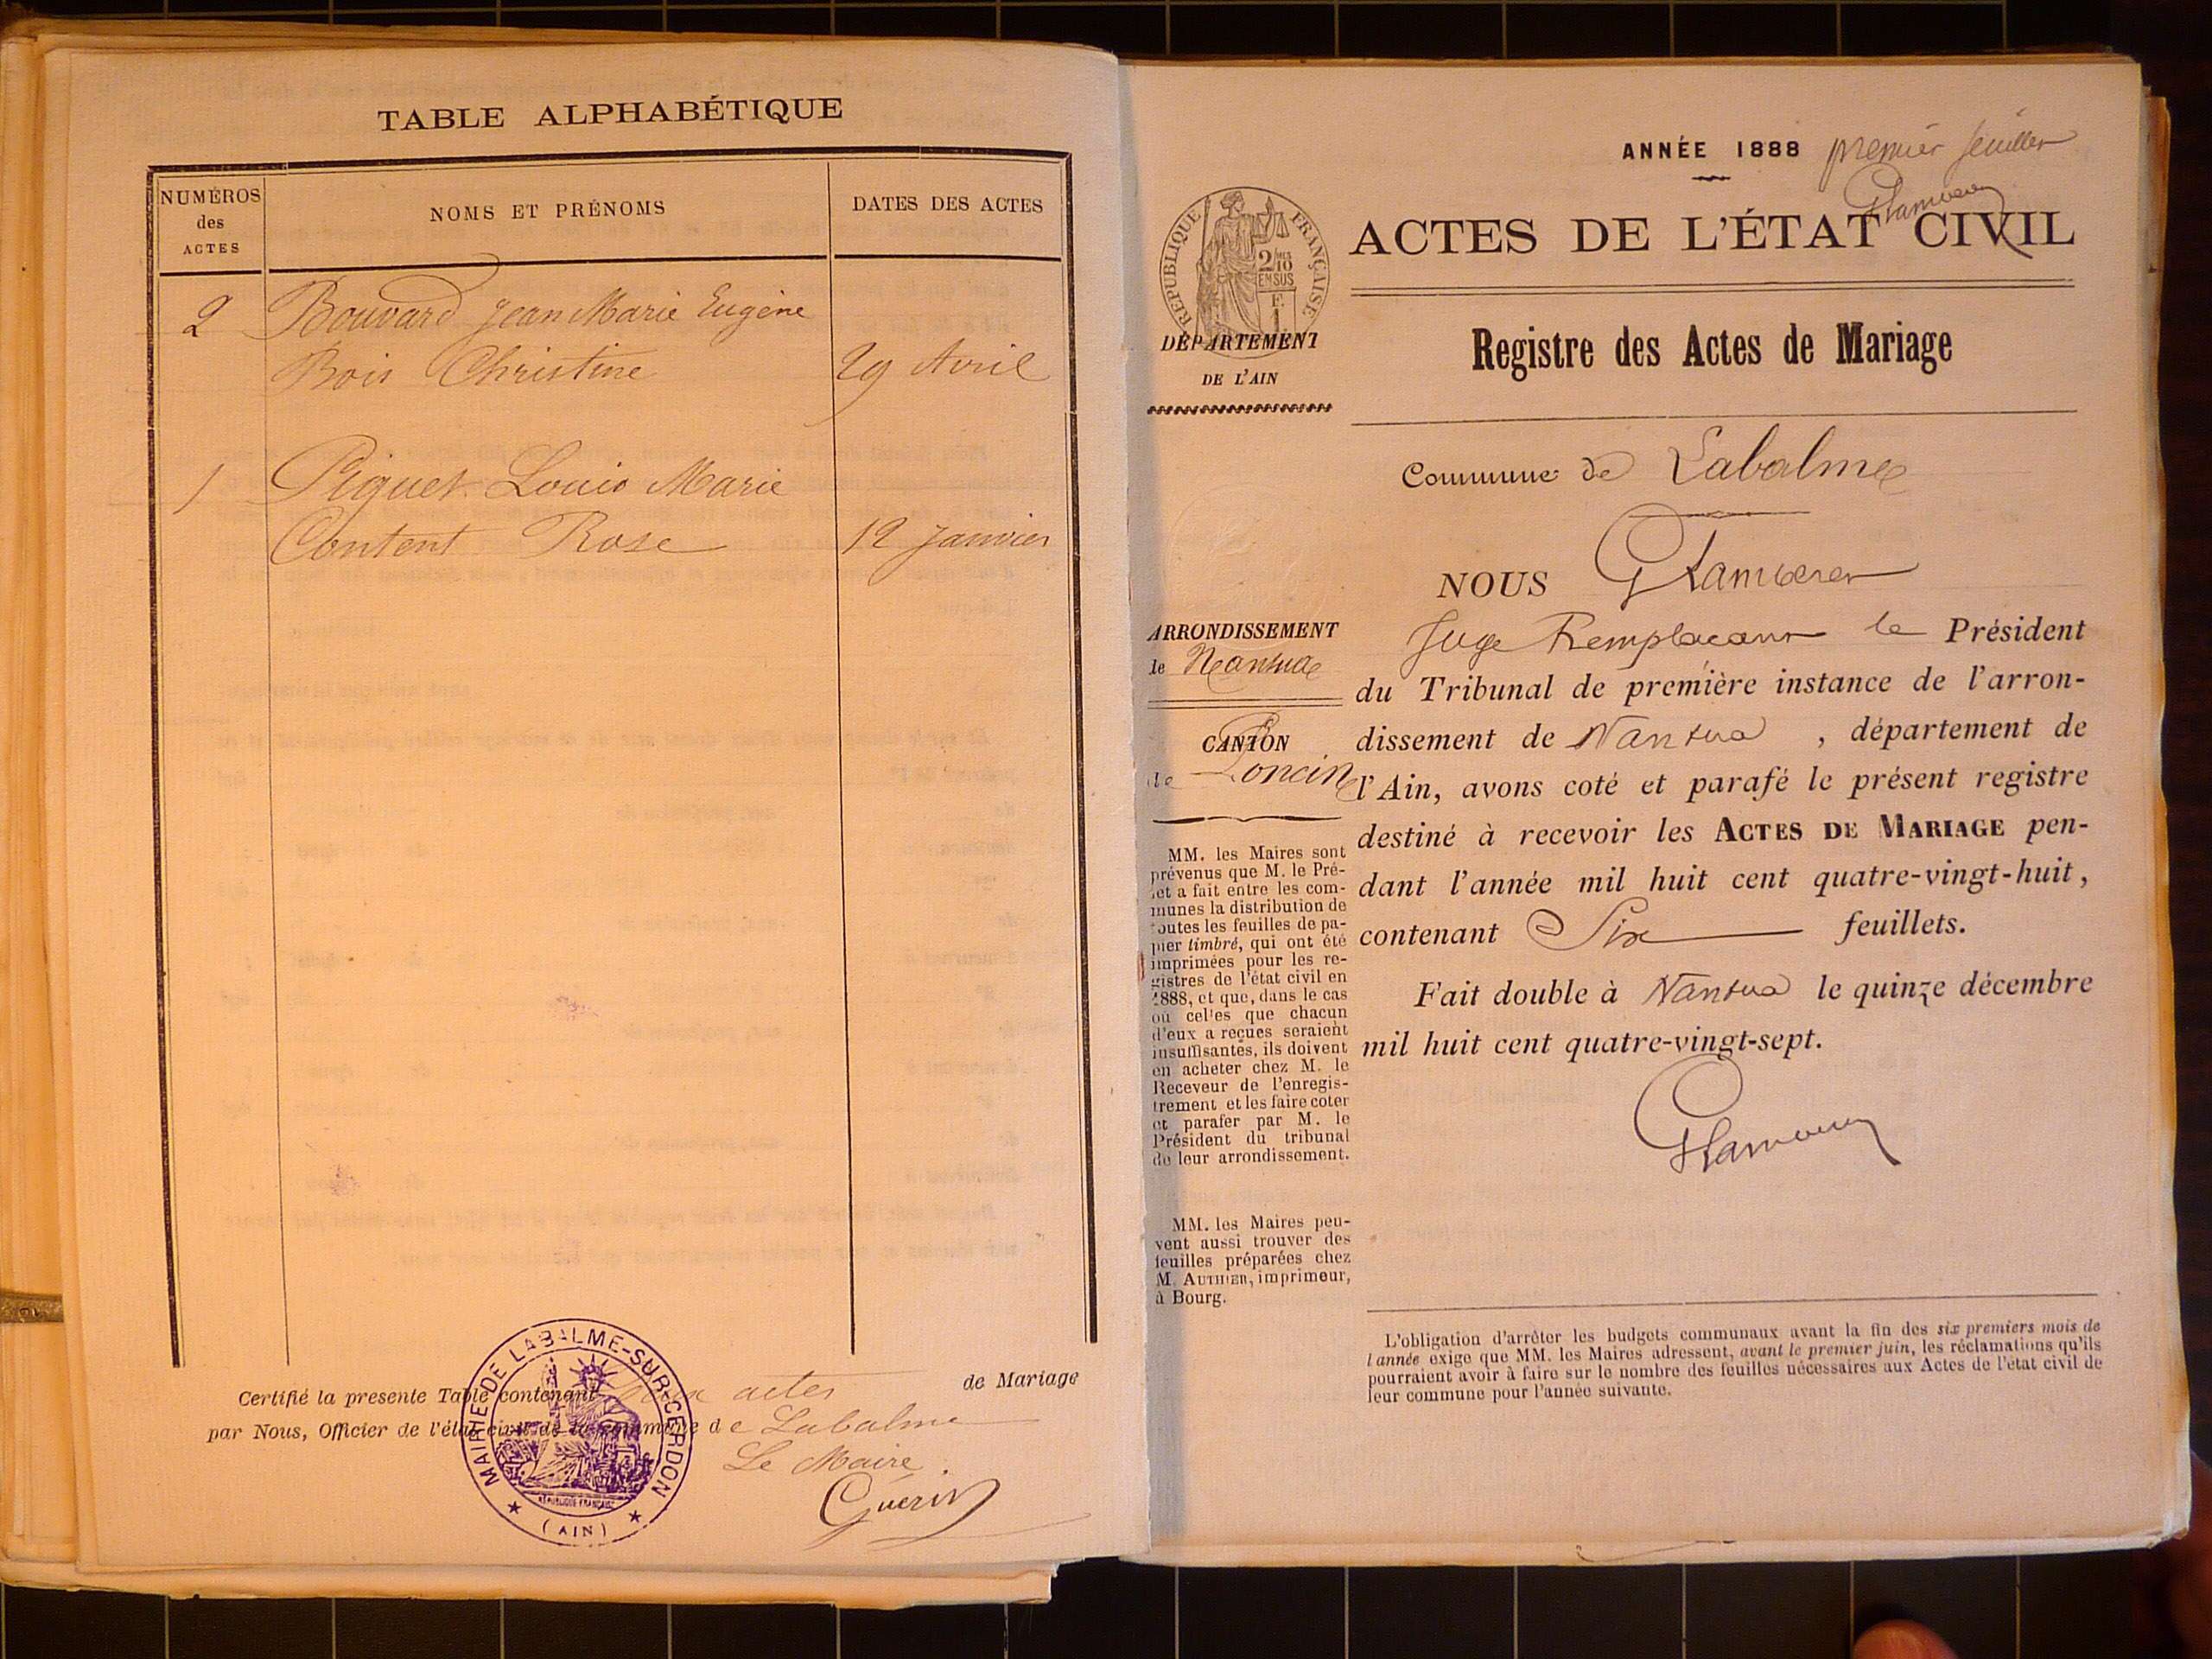 TABLE ALPHABÉTIQUE
NUMÉROS
des
ACTES
NOMS ET PRÉNOMS
DATES DES ACTES
2 Bouvard Jean Marie Eugène
Bois Christine 29 Avril
1 Piquet Louis Marie
Content Rose 12 Janvier
Certifié la presente Table contenant actes de Mariage
par Nous, Officier de l'état civil de la commune de Labalme
Le Maire
Guerin
MAIRIE DE LABALME-SUR-CERDON
RÉPUBLIQUE FRANÇAISE
(AIN)
ANNÉE 1888 premier feuillet
RÉPUBLIQUE FRANÇAISE
2/10
EN SUS
F.
1
ACTES DE L'ÉTAT CIVIL
DÉPARTEMENT
DE L'AIN
Registre des Actes de Mariage
Commune de Labalme
ARRONDISSEMENT
de Nantua
CANTON
de Poncin
MM. les Maires sont
prévenus que M. le Pré-
fet a fait entre les com-
munes la distribution de
toutes les feuilles de pa-
pier timbré, qui ont été
imprimées pour les re-
gistres de l'état civil en
1888, et que, dans le cas
où celles que chacun
d'eux a reçues seraient
insuffisantes, ils doivent
en acheter chez M. le
Receveur de l'enregis-
trement et les faire coter
et parafer par M. le
Président du tribunal
de leur arrondissement.
MM. les Maires peu-
vent aussi trouver des
feuilles préparées chez
M. AUTHIER, imprimeur,
à Bourg.
NOUS
Juge Remplacant le Président
du Tribunal de première instance de l'arron-
dissement de Nantua , département de
l'Ain, avons coté et parafé le présent registre
destiné à recevoir les ACTES DE MARIAGE pen-
dant l'année mil huit cent quatre-vingt-huit,
contenant Six feuillets.
Fait double à Nantua le quinze décembre
mil huit cent quatre-vingt-sept.
L'obligation d'arrêter les budgets communaux avant la fin des six premiers mois de
l'année exige que MM. les Maires adressent, avant le premier juin, les réclamations qu'ils
pourraient avoir à faire sur le nombre des feuilles nécessaires aux Actes de l'état civil de
leur commune pour l'année suivante.